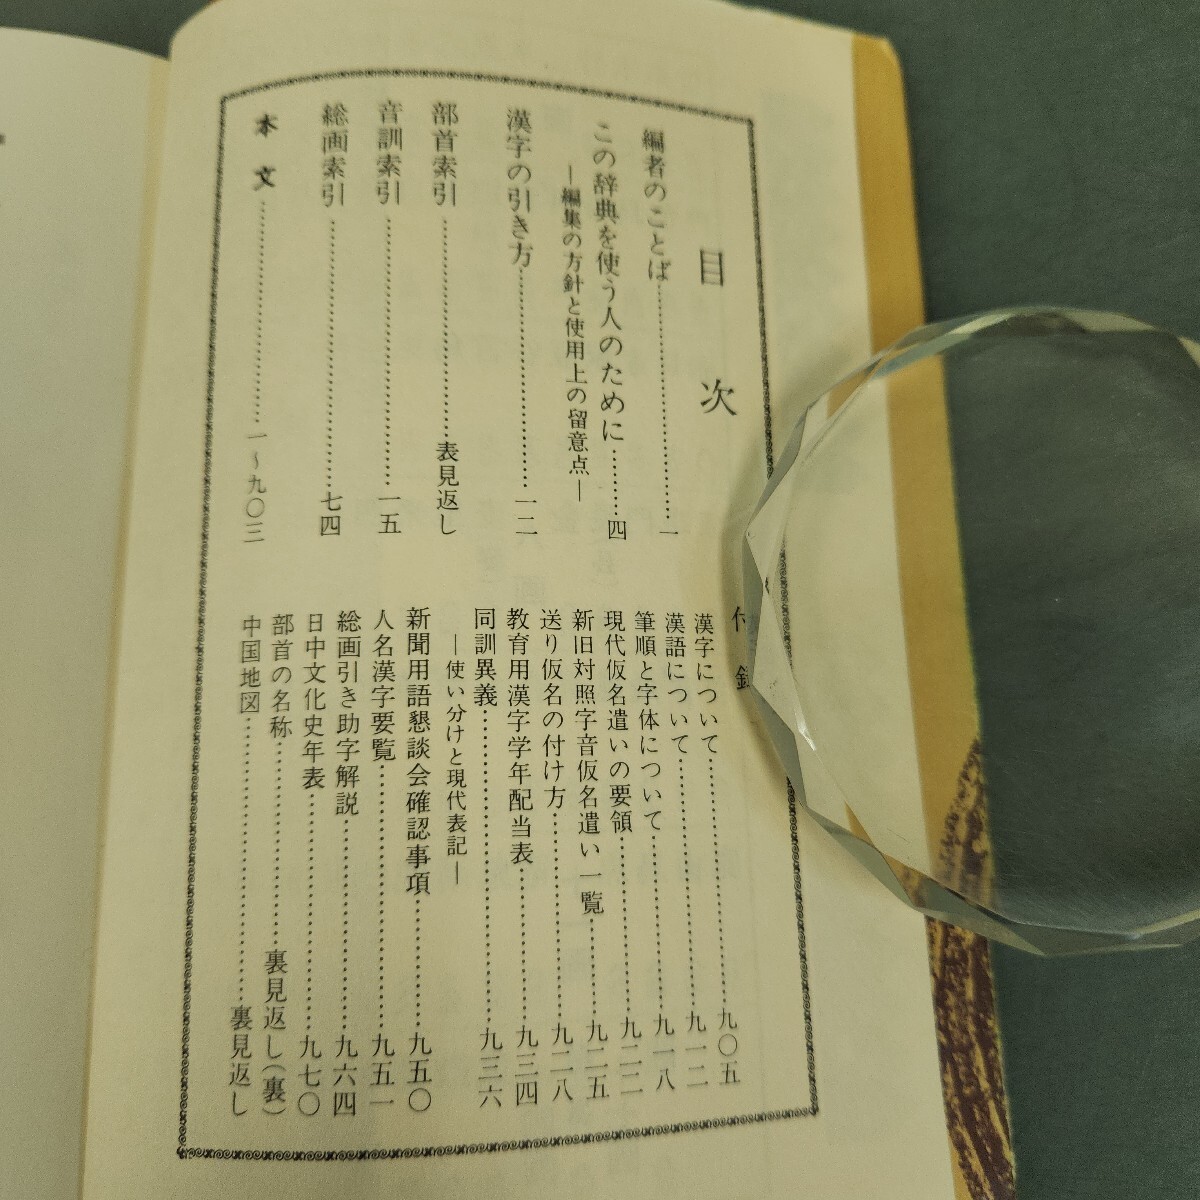 目次
編者のことば……一
この辞典を使う人のために……四
―編集の方針と使用上の留意点―
漢字の引き方……一二
部首索引……表見返し
音訓索引……一五
総画索引……七四
本文……一～九〇三
付録
漢字について……九〇五
漢語について……九一二
筆順と字体について……九一八
現代仮名遣いの要領……九二二
新旧対照字音仮名遣い一覧……九二五
送り仮名の付け方……九二八
教育用漢字学年配当表……九三四
同訓異義……九三六
―使い分けと現代表記―
新聞用語懇談会確認事項……九五〇
人名漢字要覧……九五一
総画引き助字解説……九六四
日中文化史年表……九七〇
部首の名称……裏見返し(裏)
中国地図……裏見返し